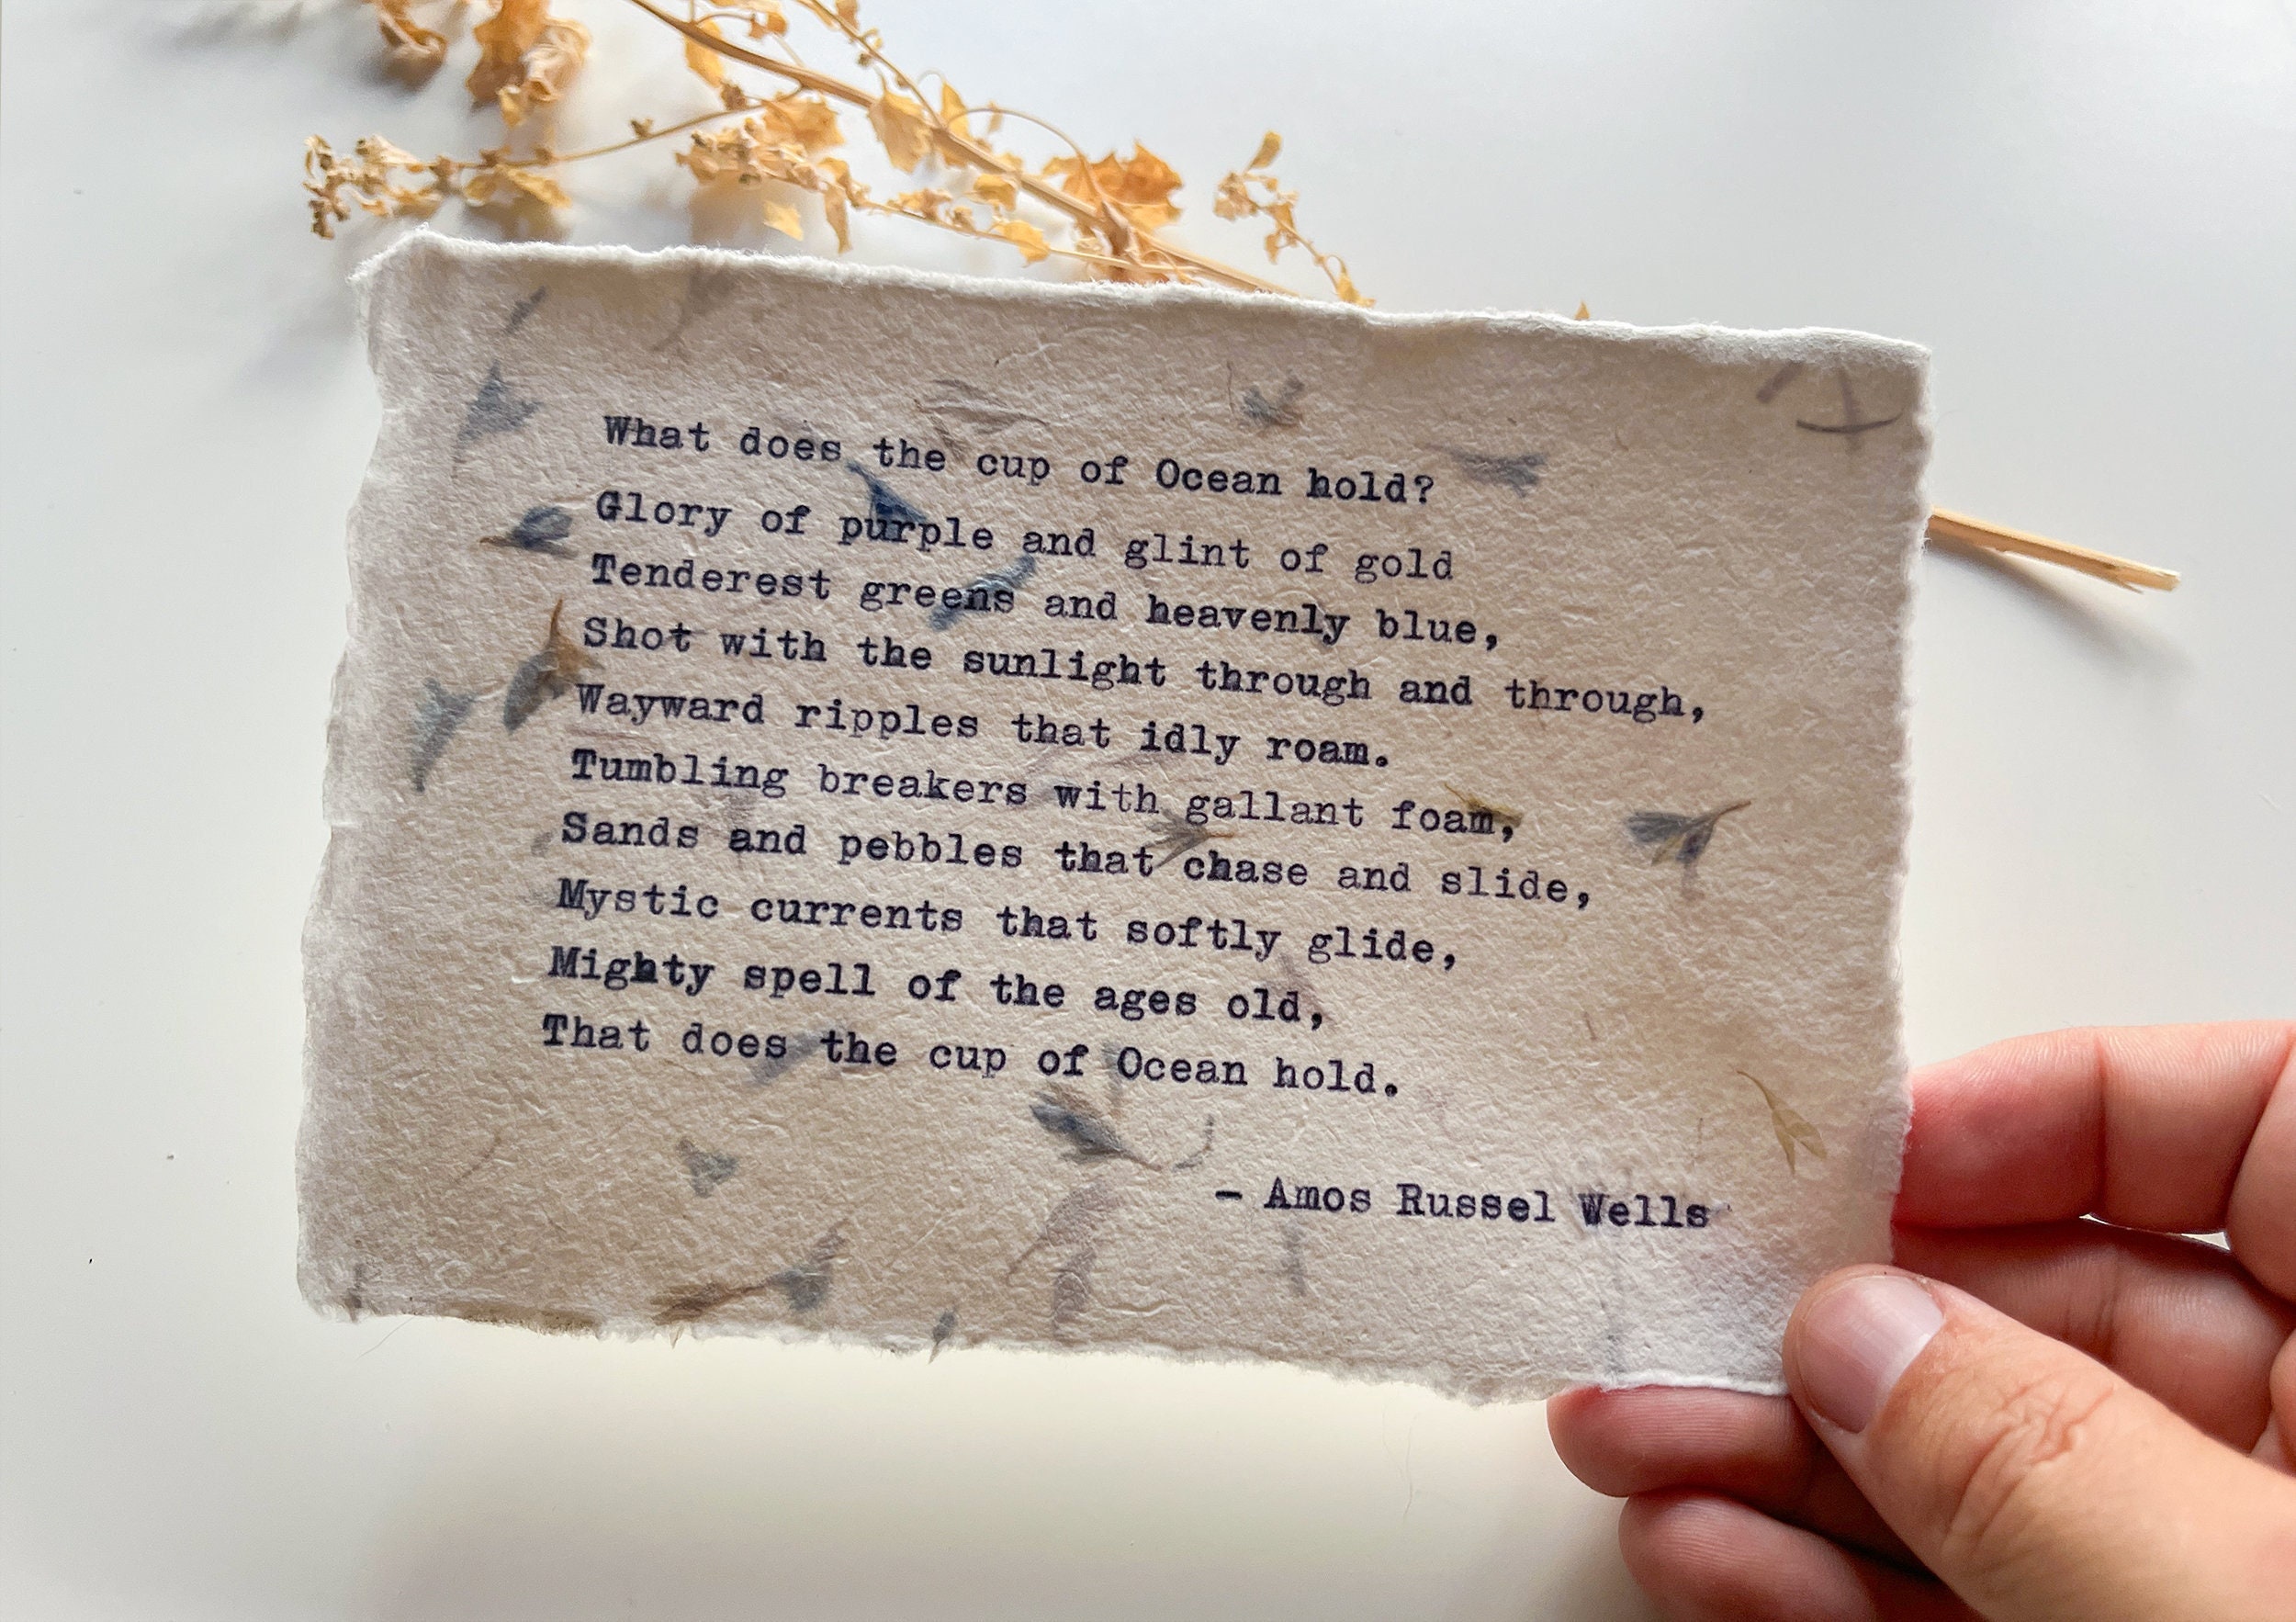 What does the cup of Ocean hold?
Glory of purple and glint of gold
Tenderest greens and heavenly blue,
Shot with the sunlight through and through,
Wayward ripples that idly roam.
Tumbling breakers with gallant foam,
Sands and pebbles that chase and slide,
Mystic currents that softly glide,
Mighty spell of the ages old,
That does the cup of Ocean hold.
- Amos Russel Wells